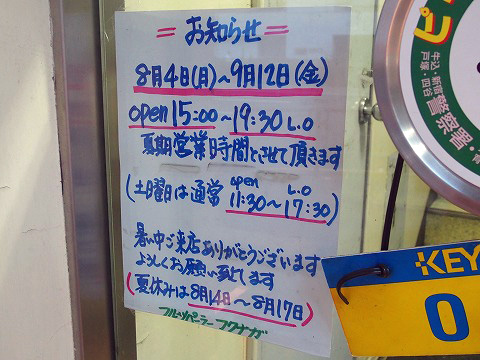 = お知らせ =
8月4日(月)～9月12日(金)
open 15:00～19:30 L.O
夏期営業時間とさせて頂きます
(土曜日は通常 open 11:30～L.O 17:30)
暑い中ご来店ありがとうございます
よろしくお願い致してます
(夏休みは8月14日～8月17日)
フルーツパーラー フクナガ
ピ
牛込・新宿
戸塚・四谷
警察署
KEY
0